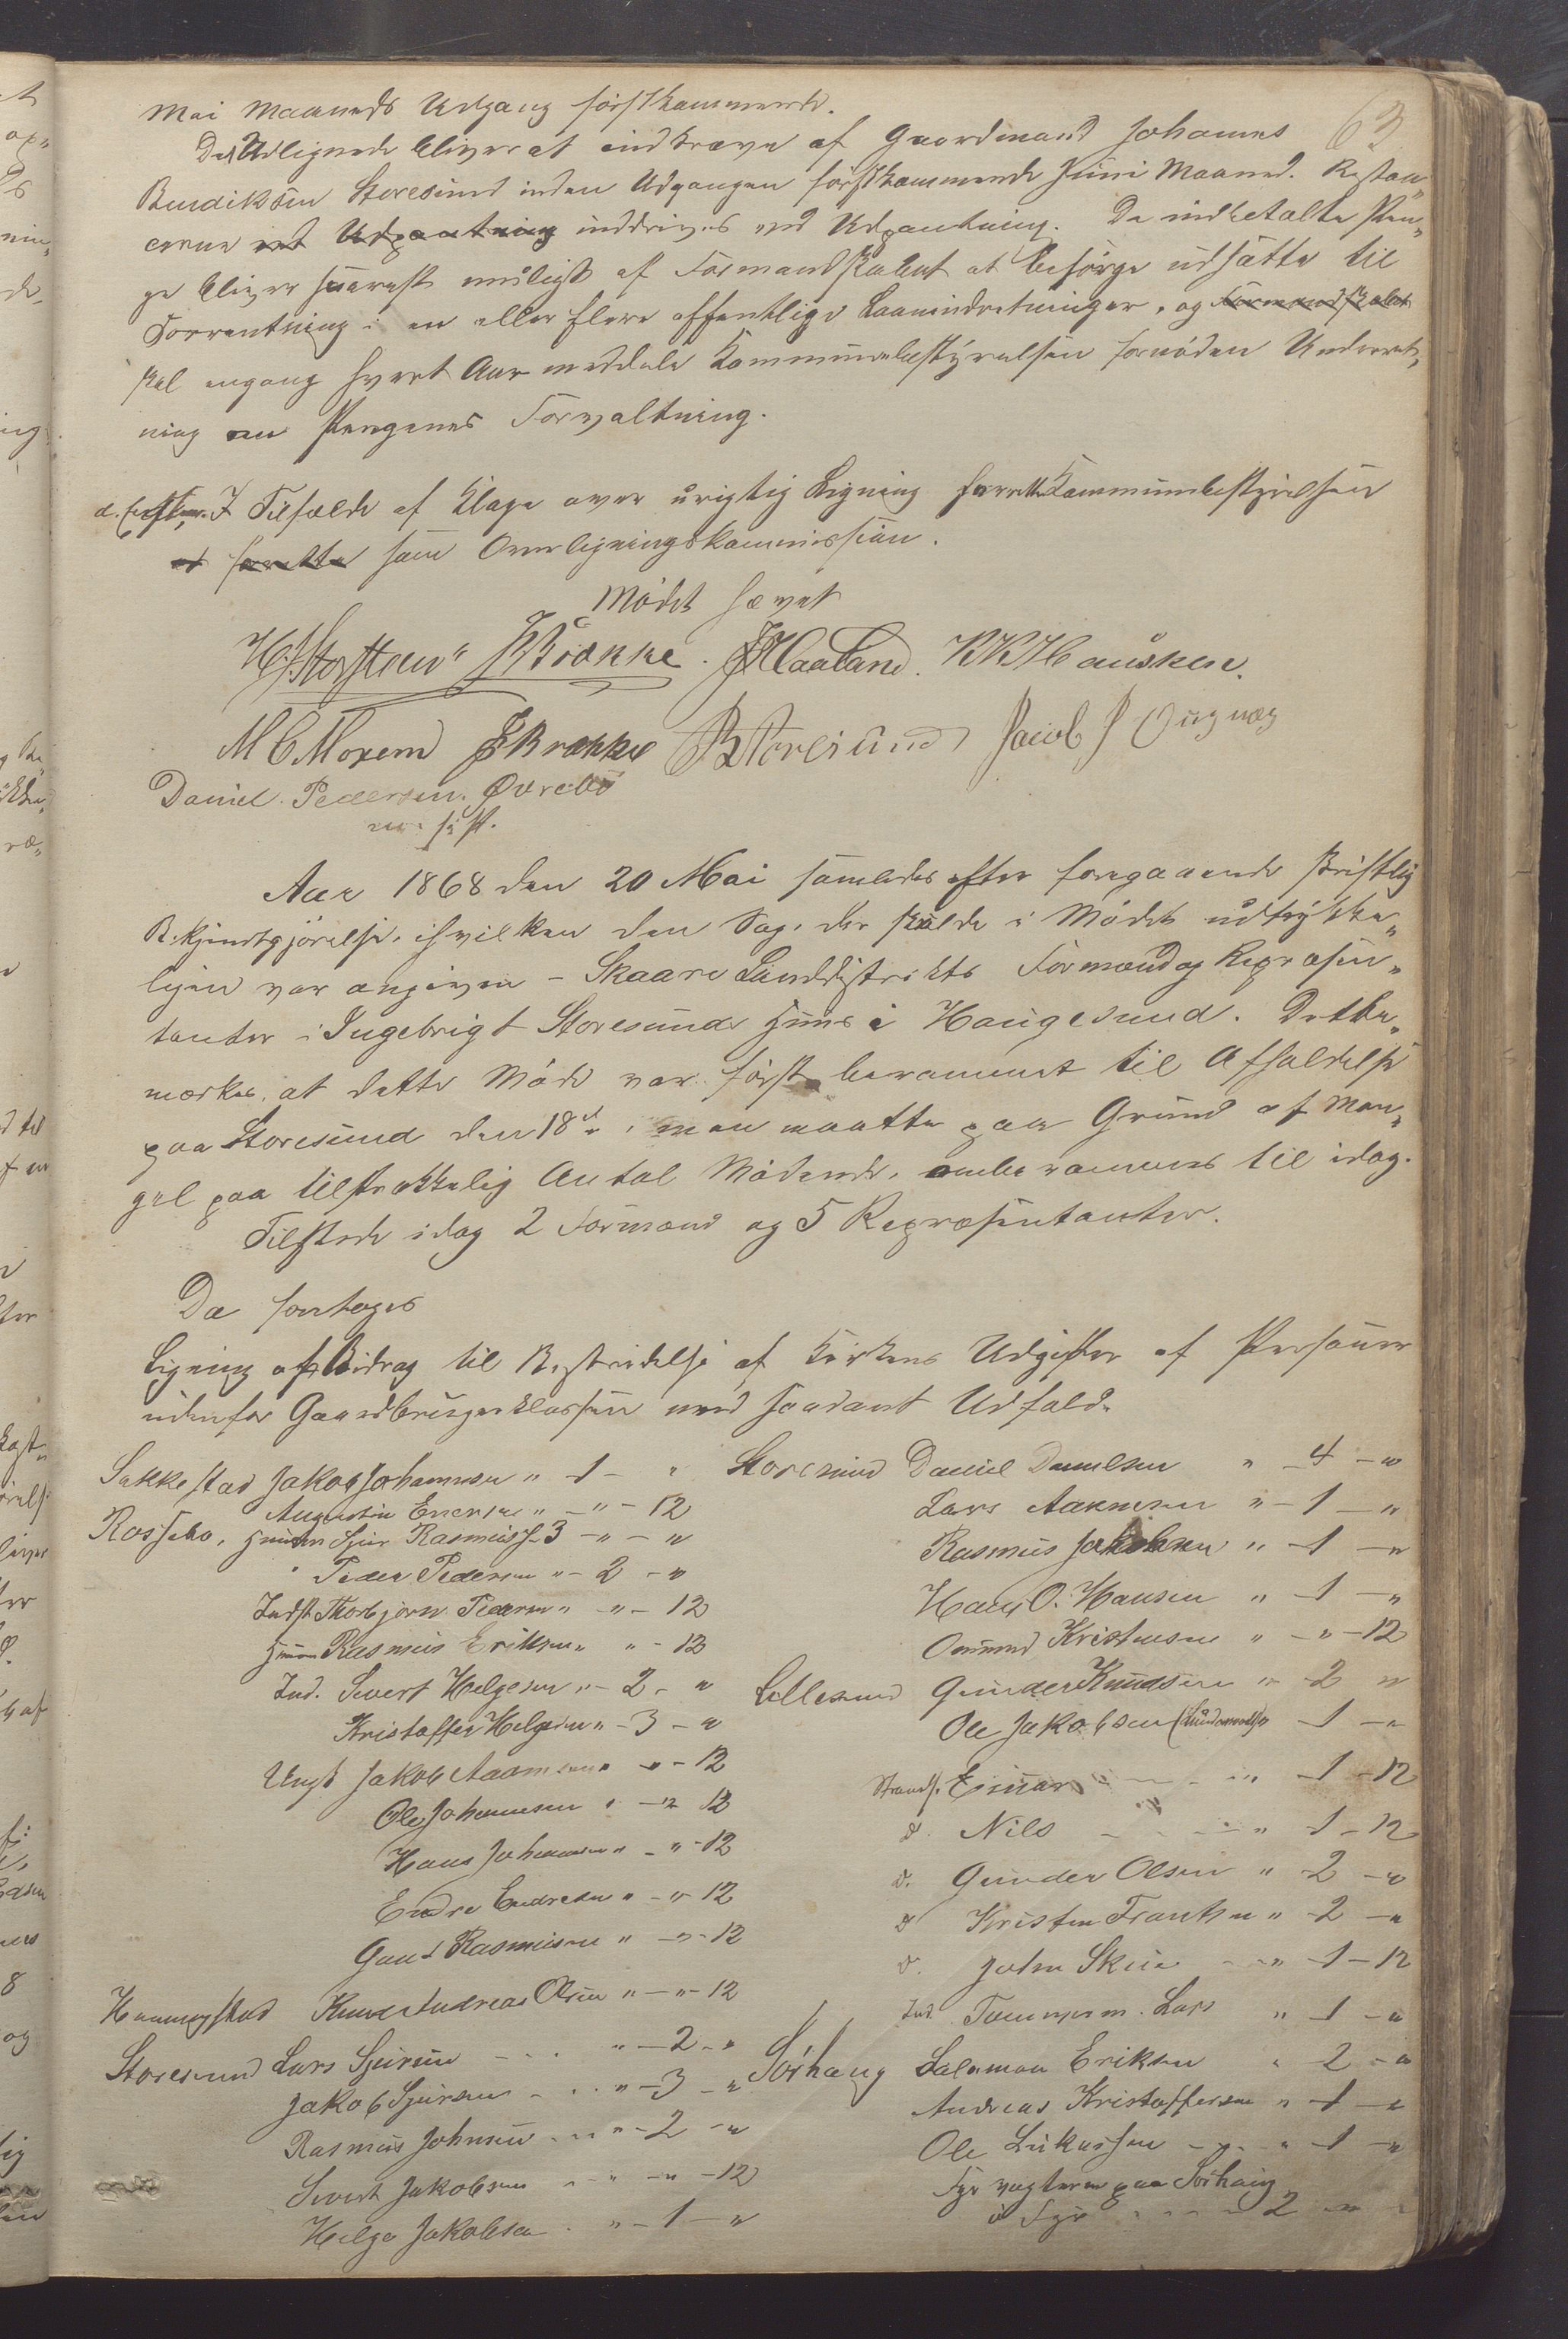 63
Mai Maaneds Udgang förstkommende.
Det Udlignede bliver at indkræve af Gaardmand Johannes
Bendiksen Storesund inden Udgangen förstkommende Juni Maaned. Restan„
cerne ved Udpantning inddrives ved Udpantning. De indbetalte Pen„
ge bliver snarest muligt af Formandskabet at besörge udsatte til
Forrentning i en eller flere offentlige Laanindretninger, og Formandskabet
skal engang hvert Aar meddele Kommunebestyrelsen fornöden Underret„
ning om Pengenes Forvaltning.
I Tilfælde af Klage over urigtig Ligning forrette Kommunebestyrelsen
at forrette som Overligningskommission.
Mödet hævet
H. Storsteen K Brække. JJ Haaland. KK Hausken.
M C Moxem E Brække B Storesund Jacob J Qvgnæg
Daniel. Pedersen. Øvrebö
m. f. P.
Aar 1868 den 20 Mai samledes efter foregaaende skriftlig
Bekjendtgjörelse, hvilken den Sag, der skulde i Mödet udtrykke„
ligen var angiven – Skaare Landdistrikts Formænd og Repræsen„
tanter i Ingebrigt Storesunds Huus i Haugesund. Det be„
mærkes, at dette Möde var först berammet til Afholdelse
paa Storesund den 18de, men maatte paa Grund af Man„
gel paa tilstrækkelig Antal Mödende, omberammes til idag.
Tilstede idag 2 Formænd og 5 Repræsentanter.
Da foretoges
Ligning af Bidrag til Bestridelse af Kirkens Udgifter af Personer
udenfor Gaardbrugerklassen med saadant Udfald.
Sakkestad Jakob Johannesen " - 1 - "
Augustin Enersen " - " - 12
Rossebö, Huusm Sjur Rasmuss. 3 - " - "
" Peder Pedersen " - 2 - "
Indst Thorbjörn Pedersen " - " - 12
Huusm Rasmus Eriksen " " - 12
Ind. Sivert Helgesen " - 2 - "
Kristoffer Helgesen " - 3 - "
Ungk Jakob Aadnesen " - " - 12
Ole Johannesen " - " 12
Hans Johannesen " - " - 12
Endre Endresen " - " - 12
Gaut Rasmussen " - " - 12
Haavingstad Knud Andreas Olsen " - " - 12
Storesund Lars Sjursen - - " - 2 - "
Jakob Sjursen - - " - 3 - "
Rasmus Johnsen - - " - 2 - "
Sivert Jakobsen - - " - " - 12
Helge Jakobsen - " - 1 - "
Storesund Daniel Danielsen " - 4 - "
Lars Aanensen " - 1 - "
Rasmus Jakobsen " - 1 - "
Hans O. Hansen " - 1 - "
Omund Kristensen " - " - 12
Lillesund Gunder Knudsen " - 2 "
Ole Jakobsen " - 1 - "
Strands. Einar - - " - 1 - 12
d. Nils - - - " - 1 - 12
d. Gunder Olsen " - 2 - "
d Kristen Frantsen " - 2 - "
d. John Skeie - - " - 1 - 12
Ind. Tömmerm. Lars " - 1 - "
Sörhaug Salamon Eriksen " - 2 - "
Andreas Kristoffersen " - 1 - "
Ole Lukassen - - - " - 1 - "
Fyrvogteren paa Sörhaug
Fyr - - - - 2 - "